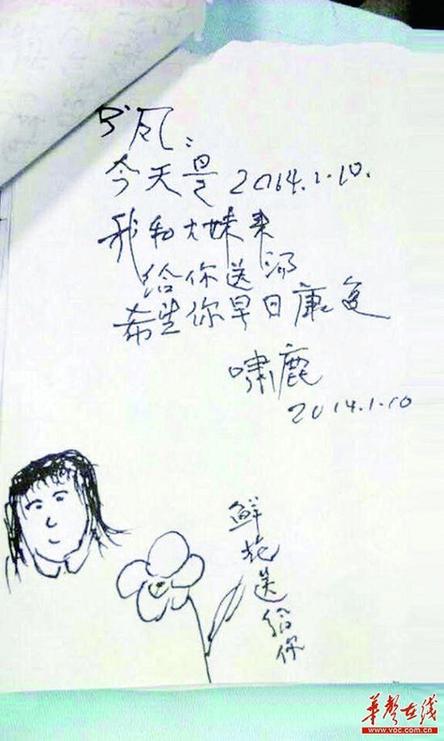 今天是 2014.1.10.
我和大妹来
给你送汤
希望你早日康复
啸鹿
2014.1.10
鲜花送给你
华声在线
www.voc.com.cn